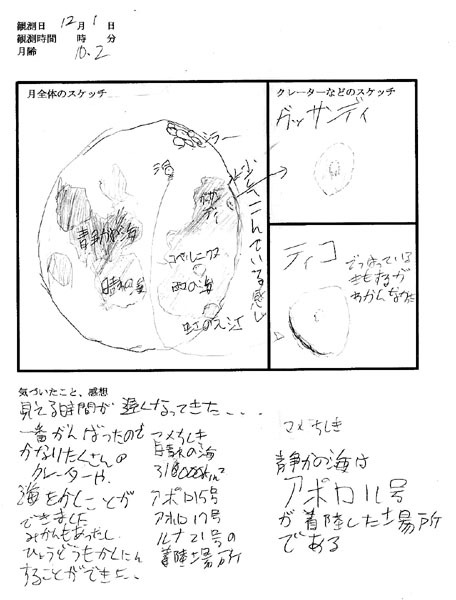 観測日 12月1日
観測時間 時 分
月齢 10.2
月全体のスケッチ
クレーターなどのスケッチ
ガッサンディ
海
少しへこんでいる感じ
静かの海
晴れの海
コペルニクス
雨の海
虹の入江
ティコ
でっぱっている
きもするが
わからなかった
気づいたこと、感想
見える時間が遅くなってきた・・・
一番がんばったのも
かなりたくさんの
クレーターや、
海をかくことが
できました
することができた、、
マメちしき
310000km²
アポロ15号
アポロ17号
ルナ21号の
着陸場所
マメちしき
静かの海は
アポロ11号
が着陸した場所
である